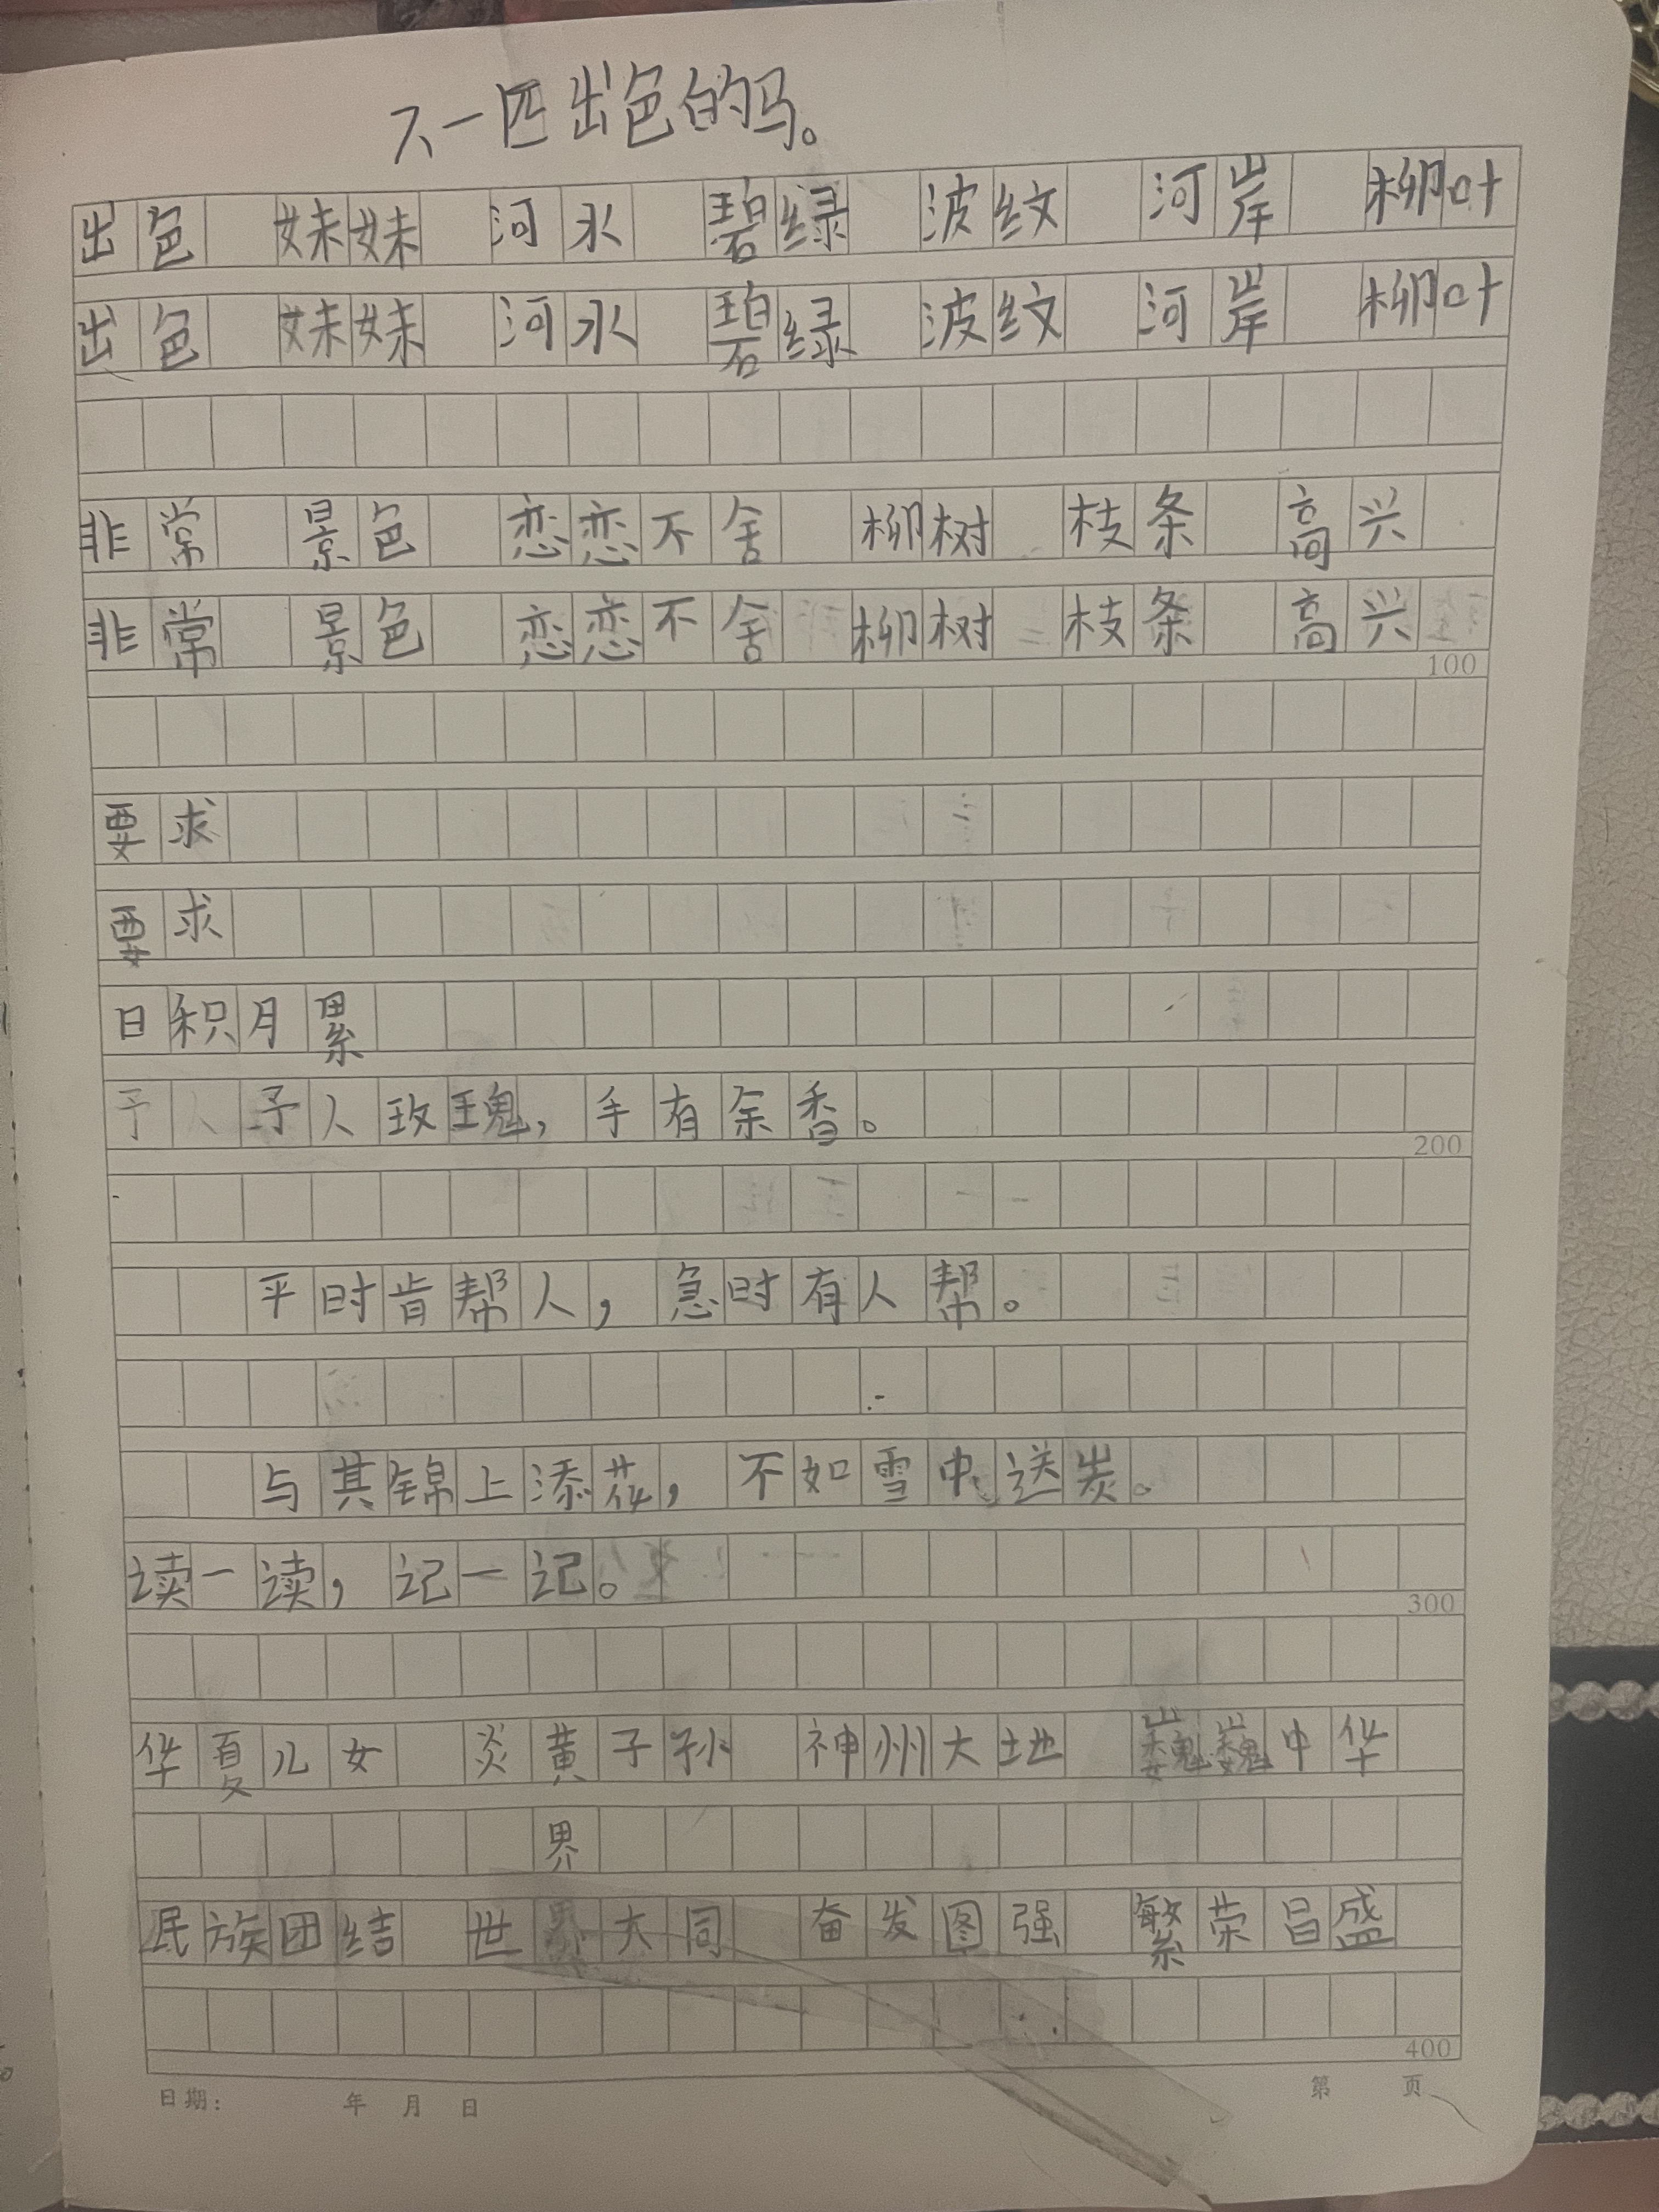 7、一匹出色的马。
出色 妹妹 河水 碧绿 波纹 河岸 柳叶
出色 妹妹 河水 碧绿 波纹 河岸 柳叶
非常 景色 恋恋不舍 柳树 枝条 高兴
非常 景色 恋恋不舍 柳树 枝条 高兴
100
要求
要求
日积月累
予人予人玫瑰,手有余香。
200
平时肯帮人,急时有人帮。
与其锦上添花,不如雪中送炭。
读一读,记一记。
300
华夏儿女 炎黄子孙 神州大地 巍巍中华
界
民族团结 世界大同 奋发图强 繁荣昌盛
400
日期: 年 月 日 第 页